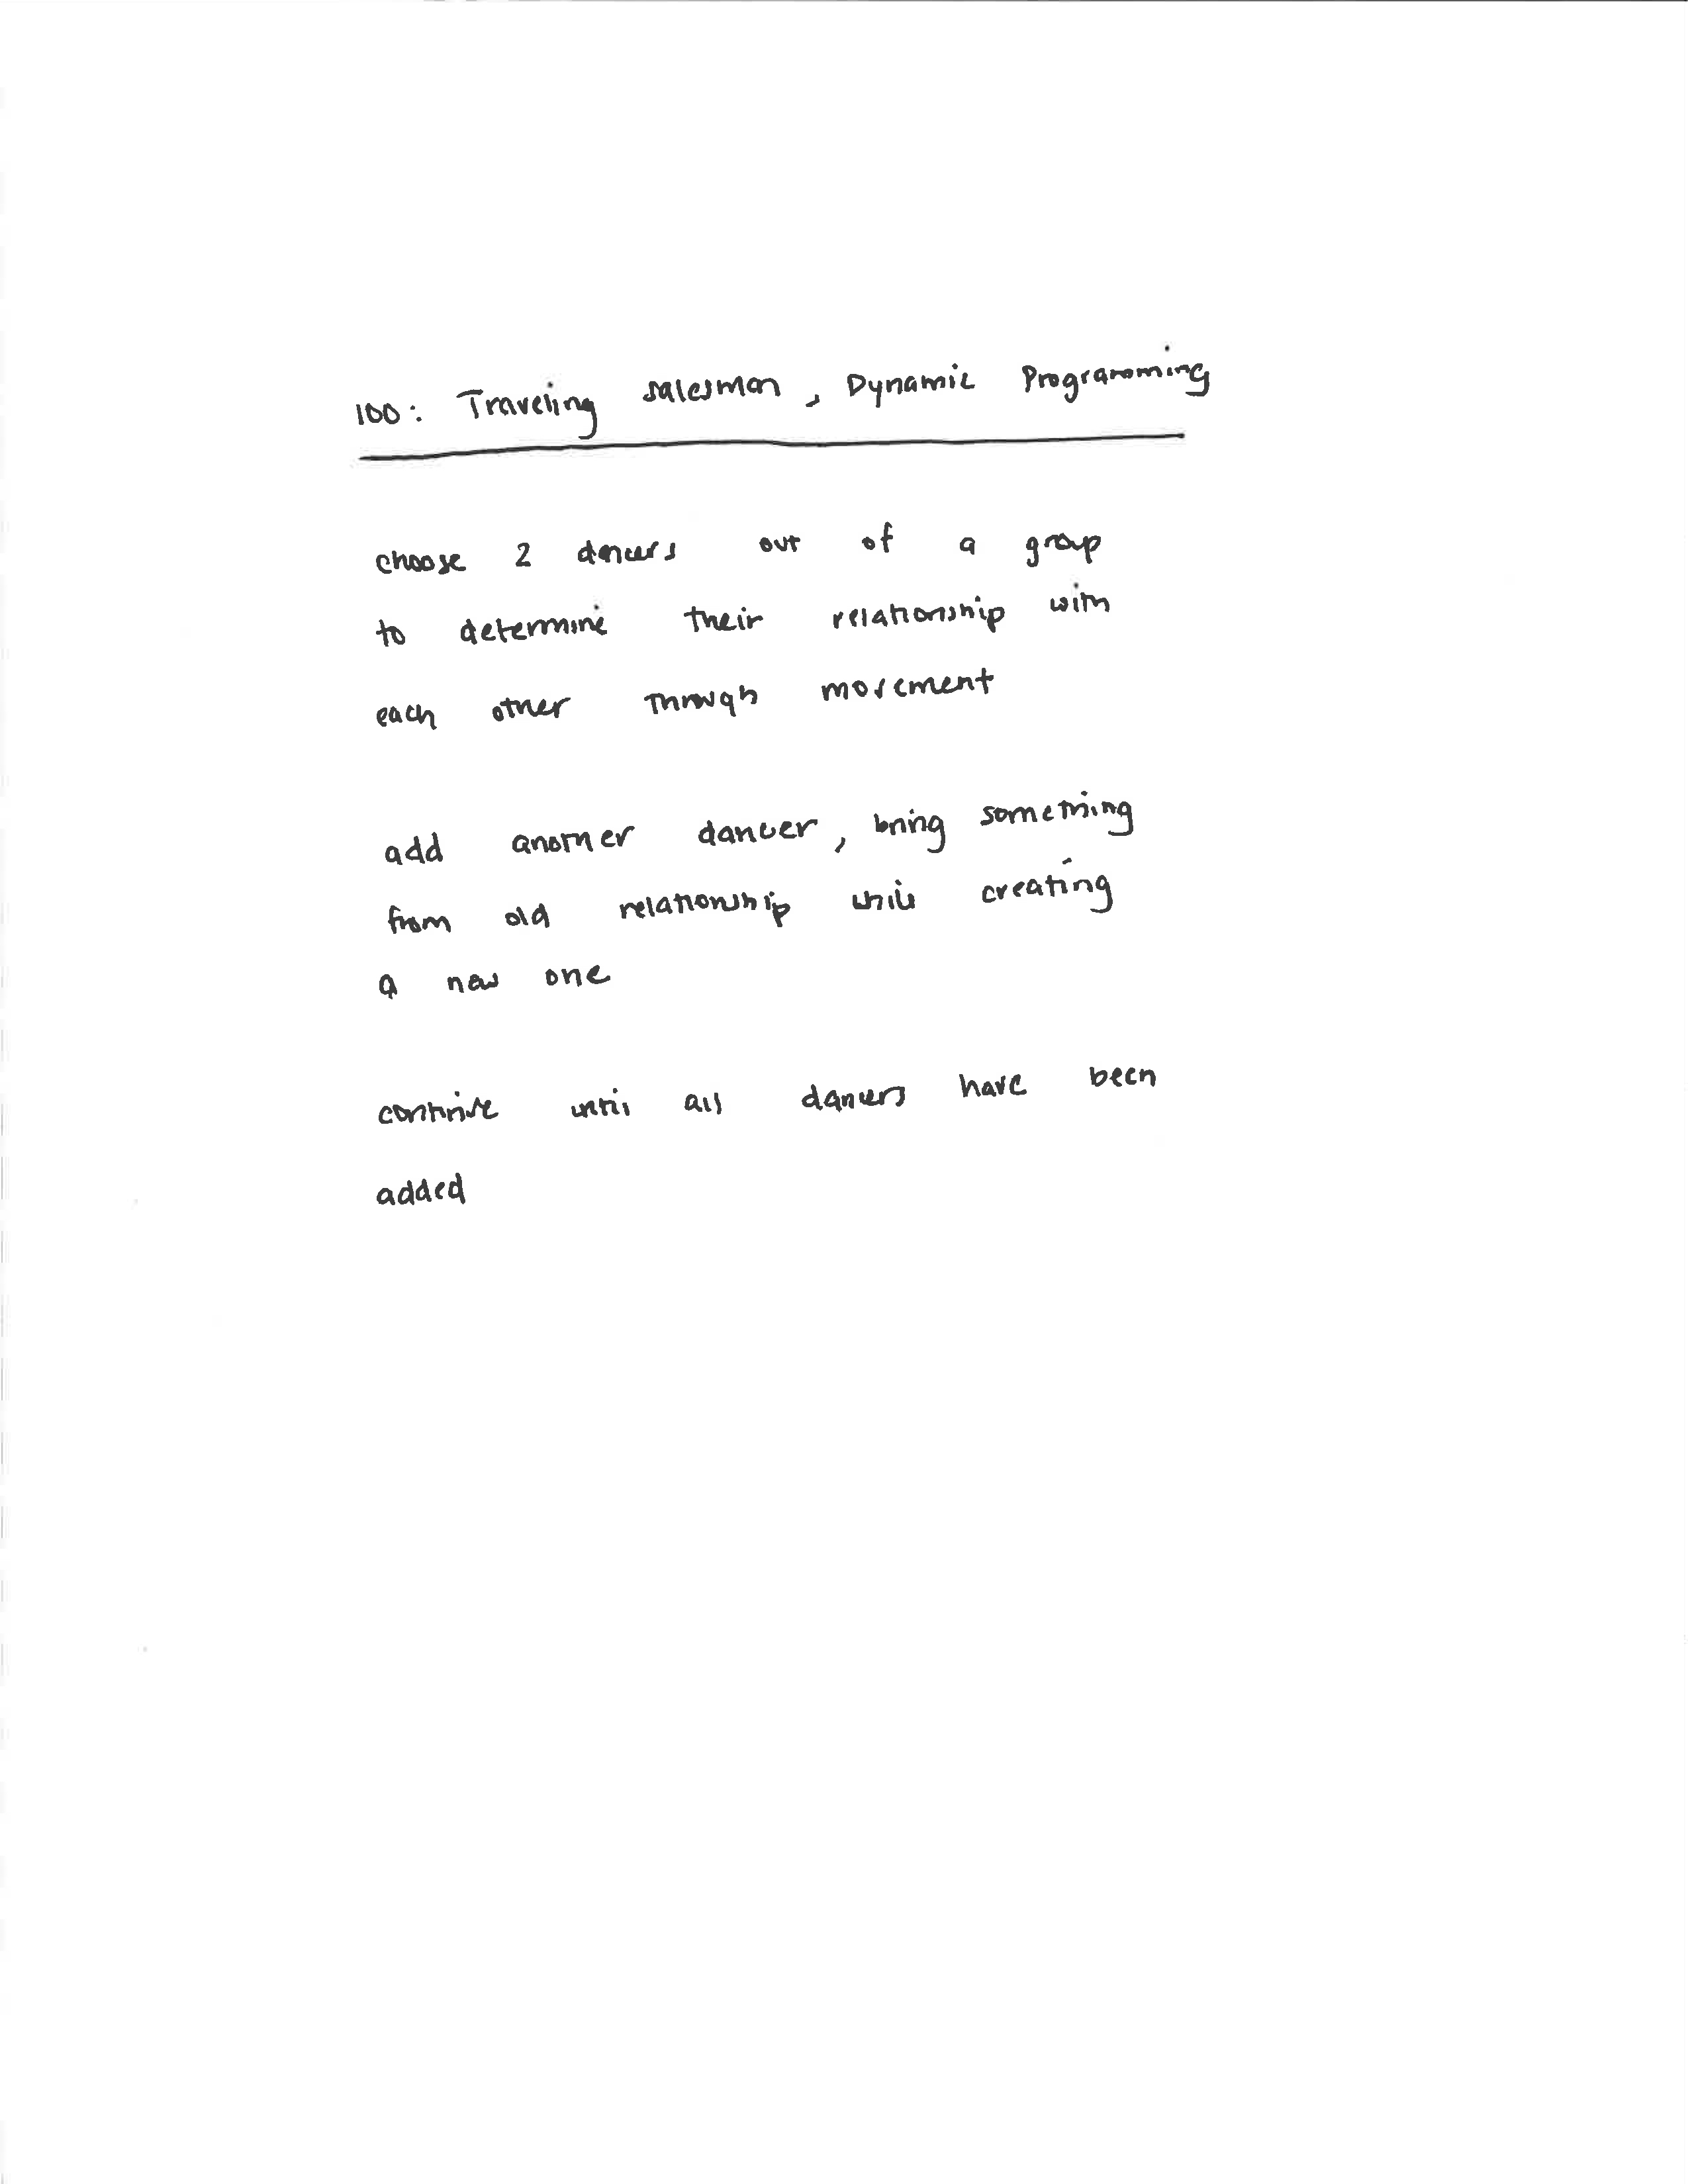 100: Traveling salesman, Dynamic Programming
choose 2 dancers out of a group
to determine their relationship with
each other through movement
add another dancer, bring something
from old relationship while creating
a new one
continue until all dancers have been
added